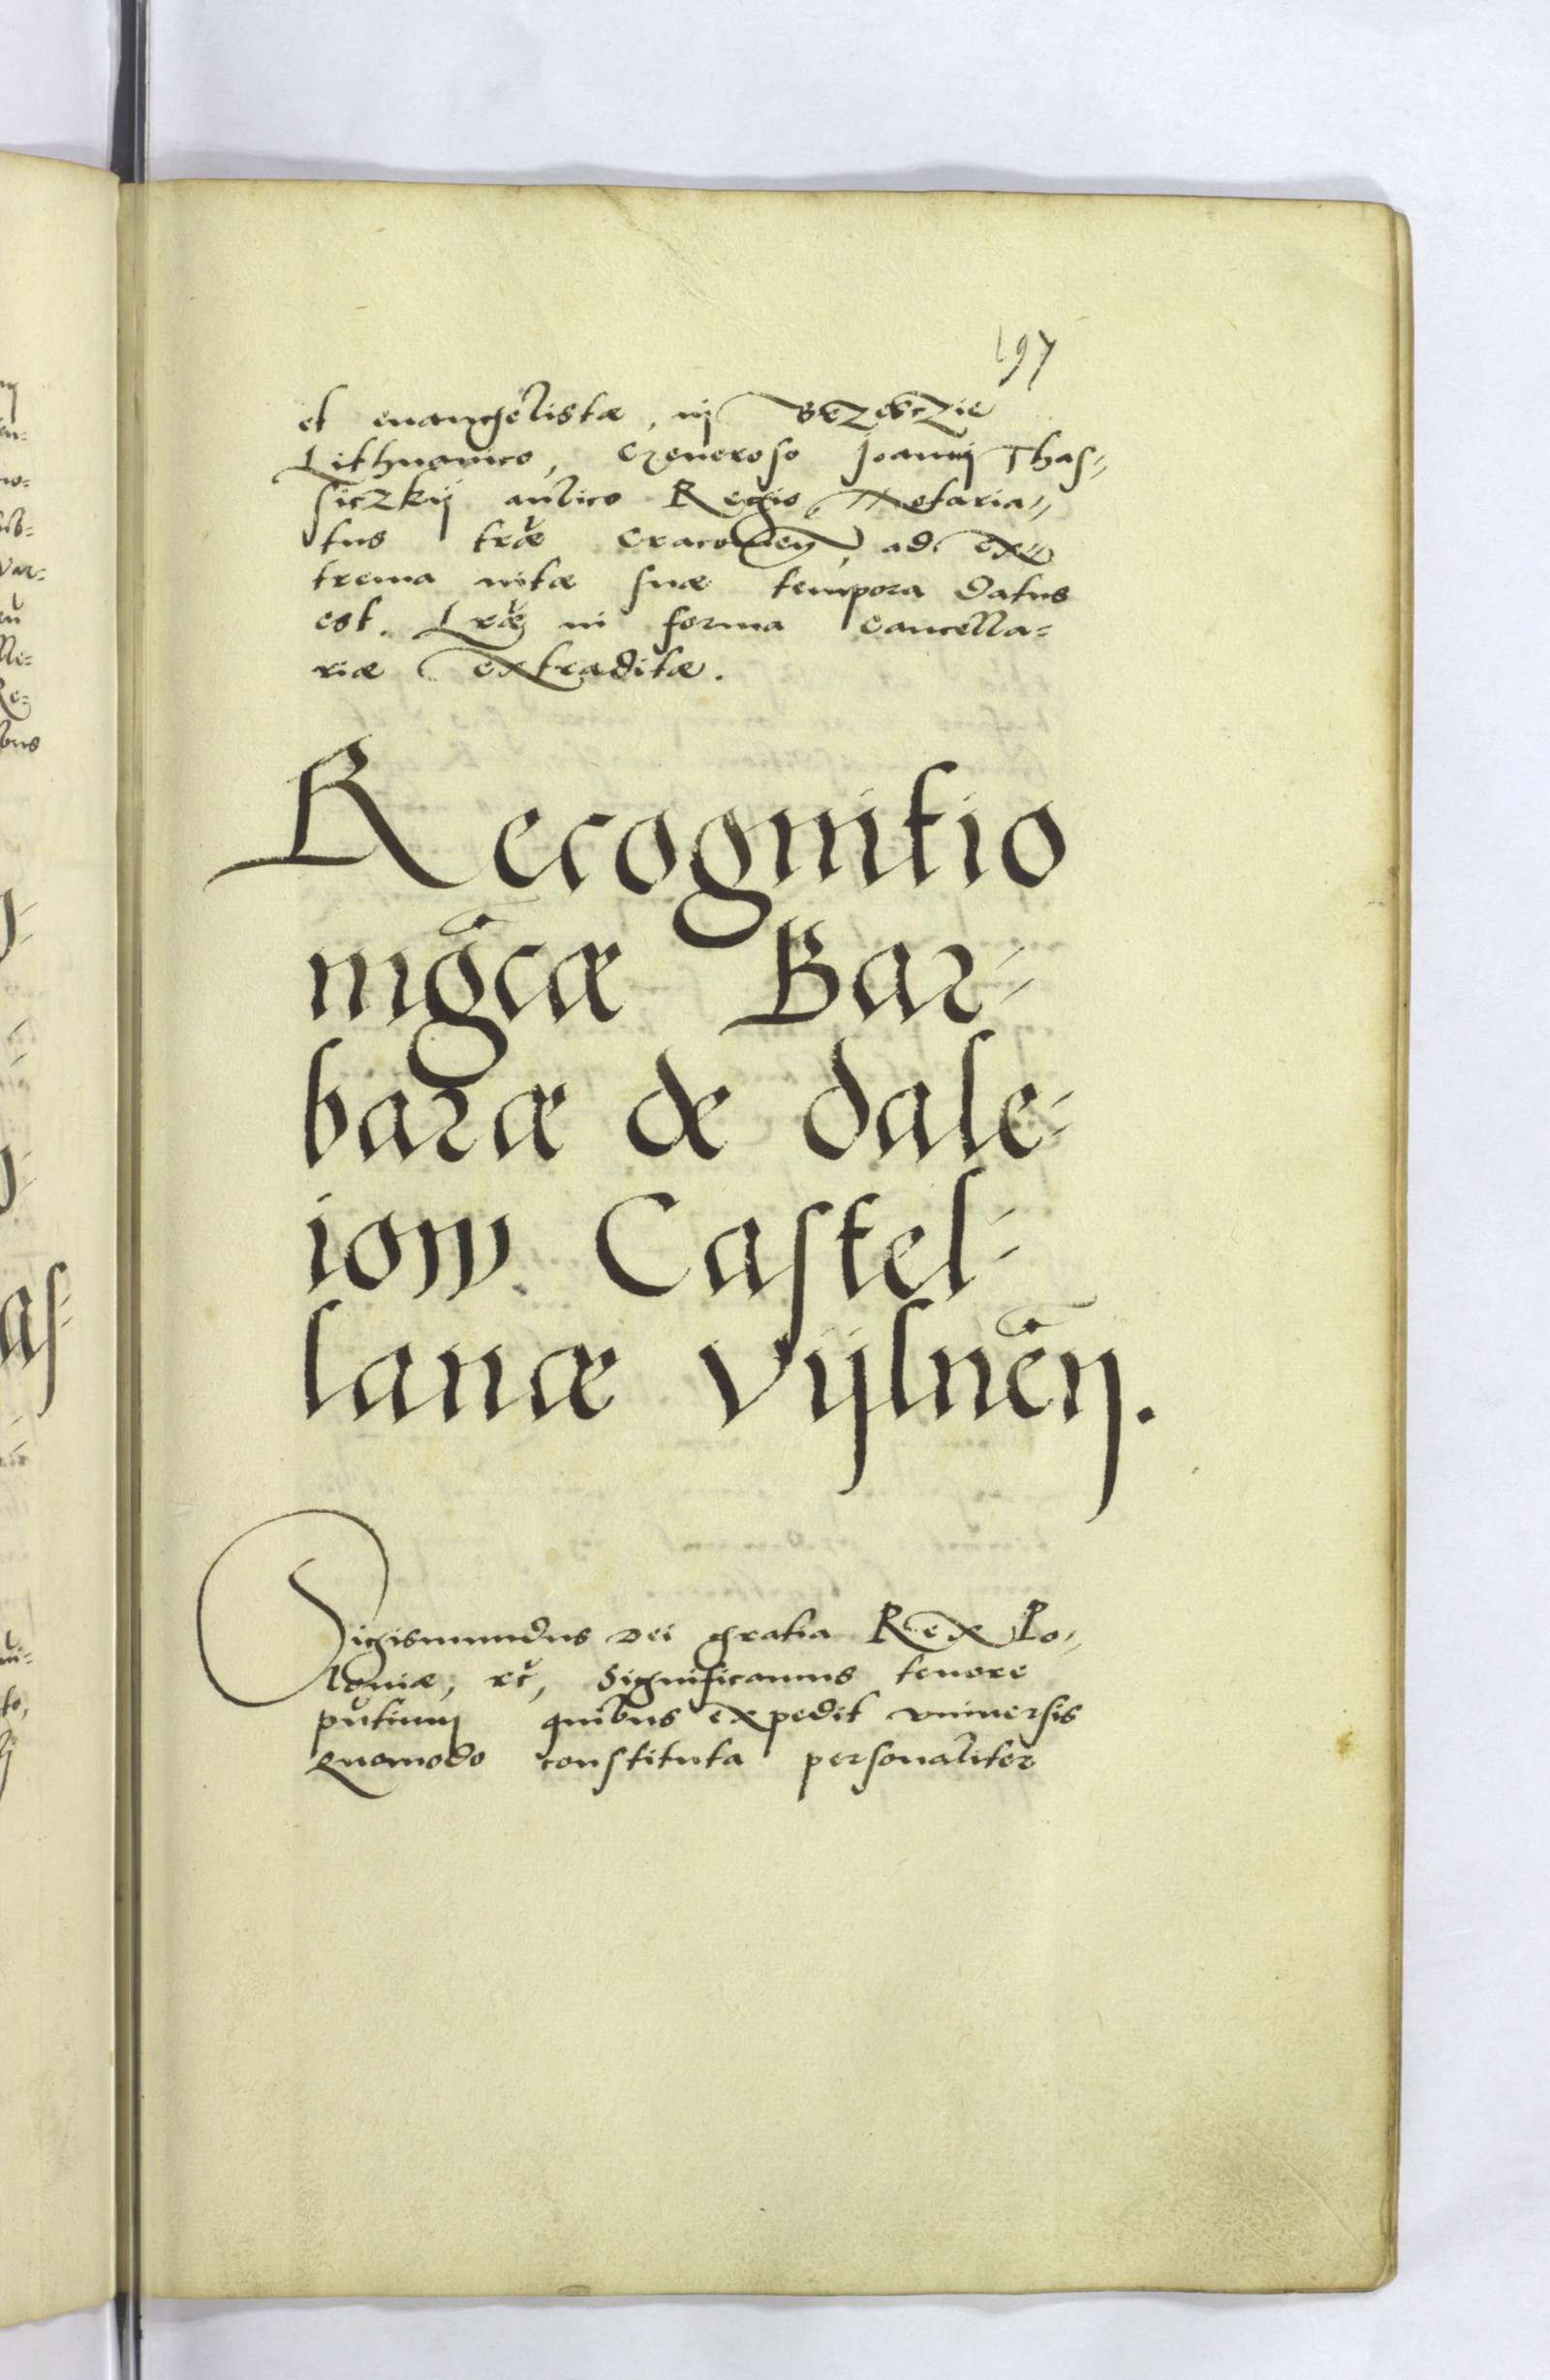 197
et euangelistæ, in Brzesczie
Lithuanico, Generoso Joanni Thas=
siczkij aulico Regio Notaria=
tus træ Cracovien, ad ex=
trema vitæ suæ tempora datus
est. Lræ in forma Cancella=
riæ extraditæ.
Recognitio
mgcæ Bar=
baræ de dale=
iow Castel=
lanæ Vijlnen.
Sigismundus Dei gratia Rex Po=
loniæ, etc, Significamus tenore
pntium quibus expedit vniuersis
Quomodo constituta personaliter